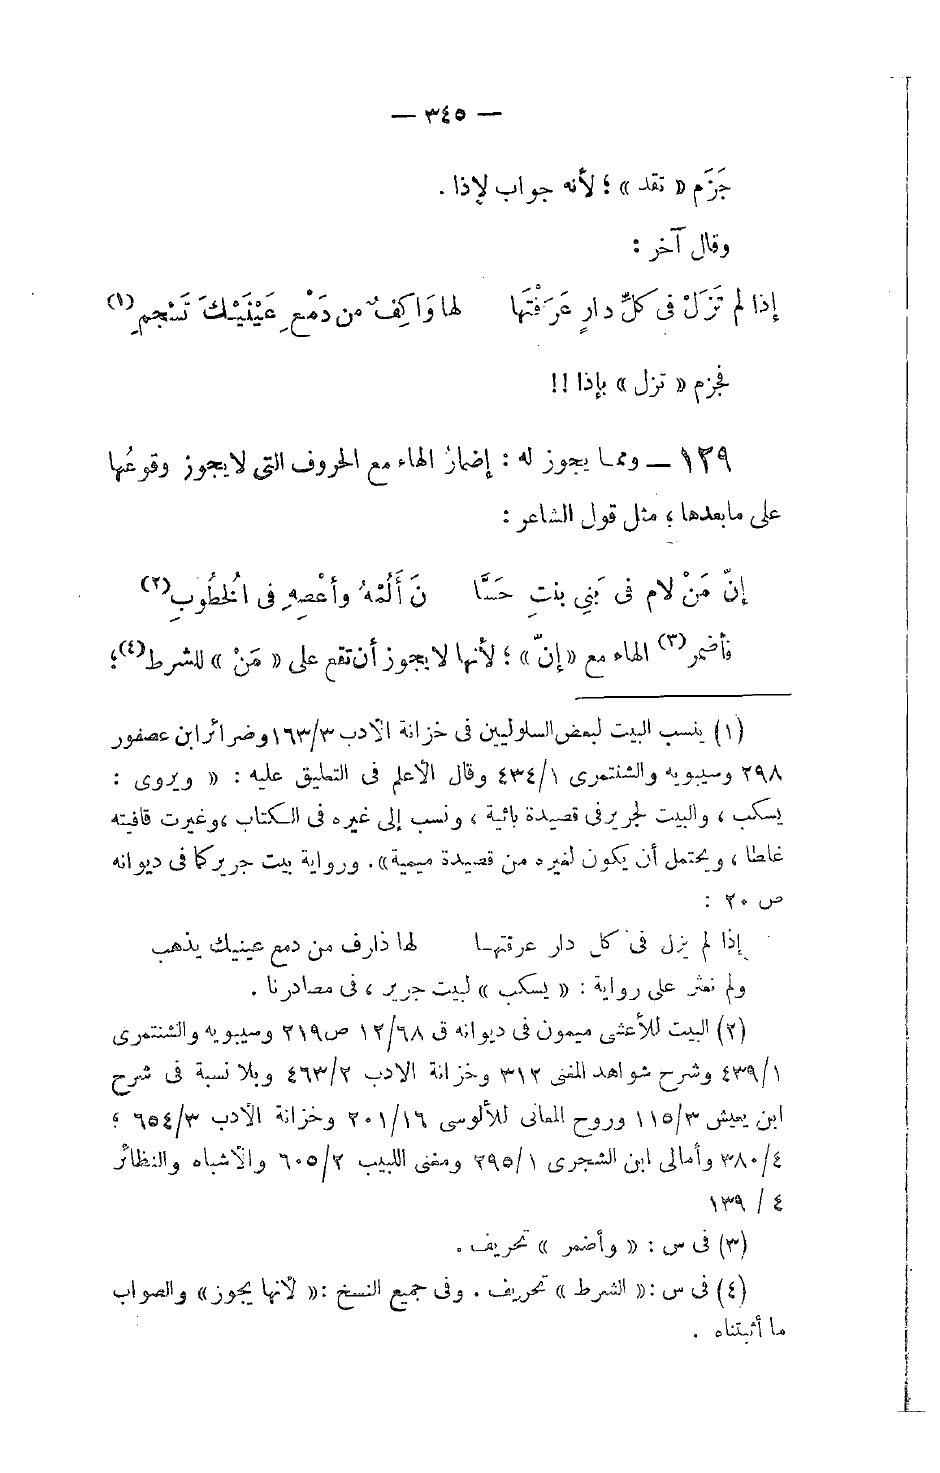 — ٣٤٥ —
جَزَم « تقد » ؛ لأنه جواب لإذا .
وقال آخر :
إذا لم تَزَلْ فى كلِّ دارٍ عَرَفْتَها لها وَاكِفٌ من دَمْعِ عَيْنَيْكَ تَسْجمِ (١)
فجزم « تزل » بإذا !!
١٣٩ — ومما يجوز له : إضمارُ الهاء مع الحروف التى لا يجوز وقوعُها
على ما بعدها ، مثل قول الشاعر :
إنّ مَنْ لام فى بَنِي بنتِ حَسَّا نَ أَلُمْهُ وأعْصِهِ فى الخطُوبِ (٢)
فأضمر (٣) الهاء مع «إنّ » ؛ لأنها لا يجوز أن تقع على « مَنْ » للشرط (٤) ؛
(١) ينسب البيت لبعض السلوليين فى خزانة الأدب ١٦٣/٣ وضرائر ابن عصفور
٢٩٨ وسيبويه والشنتمرى ٤٣٤/١ وقال الأعلم فى التعليق عليه : « ويروى :
يسكب ، والبيت لجرير فى قصيدة بائية ، ونسب إلى غيره فى الكتاب ، وغيرت قافيته
غلطا ، ويحتمل أن يكون لغيره من قصيدة ميمية». ورواية بيت جرير كما فى ديوانه
ص ٢٠ :
إذا لم يزل فى كل دار عرفتها لها ذارف من دمع عينيك يذهب
ولم نعثر على رواية : « يسكب » لبيت جرير ، فى مصادرنا .
(٢) البيت للأعشى ميمون فى ديوانه ق ١٢/٦٨ ص ٢١٩ وسيبويه والشنتمرى
٤٣٩/١ وشرح شواهد المغنى ٣١٢ وخزانة الأدب ٤٦٣/٢ وبلا نسبة فى شرح
ابن يعيش ١١٥/٣ وروح المعانى للألوسى ٢٠١/١٦ وخزانة الأدب ٦٥٤/٣ ؛
٣٨٠/٤ وأمالى ابن الشجرى ٢٩٥/١ ومغنى اللبيب ٦٠٥/٢ والأشباه والنظائر
٤ / ١٣٩
(٣) فى س : « وأضمر » تحريف .
(٤) فى س : « الشرط » تحريف . وفى جميع النسخ : « لأنها يجوز» والصواب
ما أثبتناه .